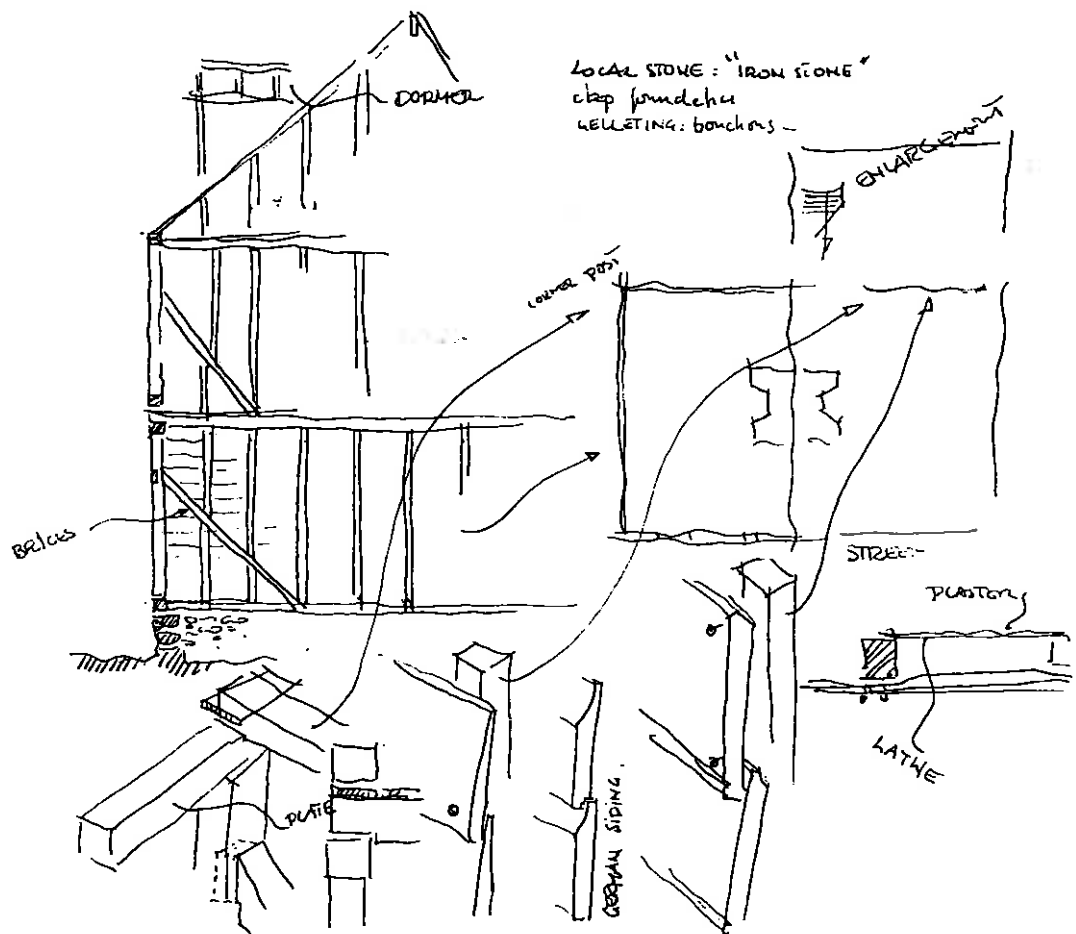 DORMER
LOCAL STONE: "IRON STONE"
GELLETING: bouchons -
ENLARGEMENT
CORNER POST
BRICKS
STREET
PLASTER
LATHE
PLATE
GERMAN SIDING.